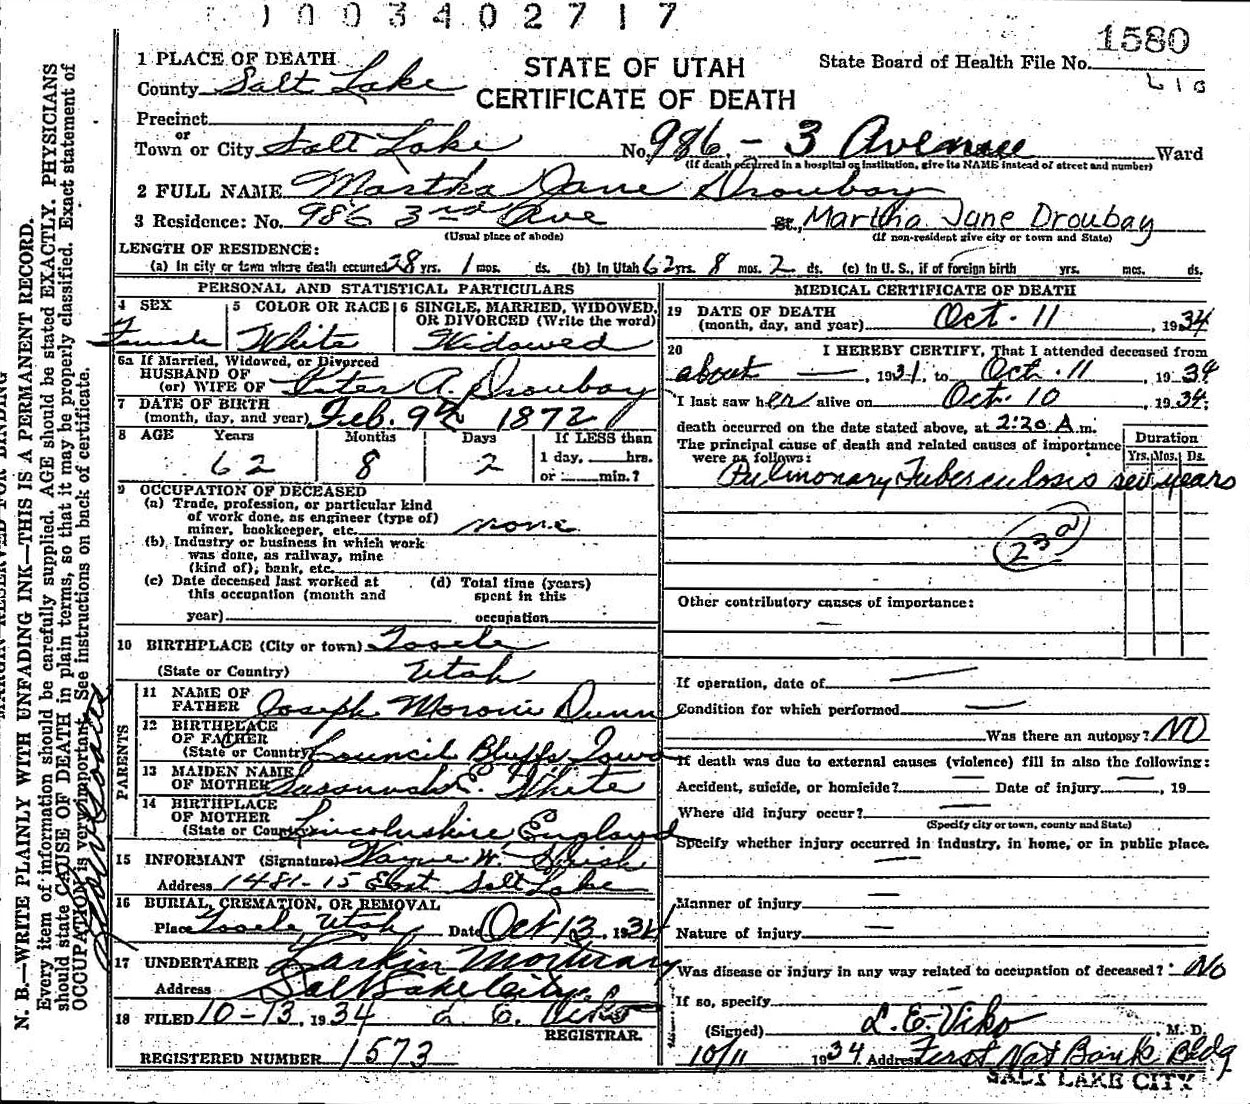 1003402717
1580
1 PLACE OF DEATH
STATE OF UTAH
State Board of Health File No.
County Salt Lake
CERTIFICATE OF DEATH
Precinct
or
Town or City Salt Lake No. 986 - 3 Avenue Ward
(If death occurred in a hospital or institution, give its NAME instead of street and number)
2 FULL NAME Martha Jane Droubay
3 Residence: No. 986 3rd Ave St., Martha Jane Droubay
(Usual place of abode) (If non-resident give city or town and State)
LENGTH OF RESIDENCE:
(a) In city or town where death occurred 28 yrs. 1 mos. ds. (b) In Utah 62 yrs. 8 mos. 2 ds. (c) In U. S., if of foreign birth yrs. mos. ds.
PERSONAL AND STATISTICAL PARTICULARS
4 SEX 5 COLOR OR RACE 6 SINGLE, MARRIED, WIDOWED,
OR DIVORCED (Write the word)
Female White Widowed
6a If Married, Widowed, or Divorced
HUSBAND OF
(or) WIFE OF Peter A. Droubay
7 DATE OF BIRTH
(month, day, and year) Feb. 9th 1872
8 AGE Years Months Days If LESS than
1 day, hrs.
62 8 2 or min.?
9 OCCUPATION OF DECEASED
(a) Trade, profession, or particular kind
of work done, as engineer (type of)
miner, bookkeeper, etc. none
(b) Industry or business in which work
was done, as railway, mine
(kind of), bank, etc.
(c) Date deceased last worked at (d) Total time (years)
this occupation (month and spent in this
year) occupation
10 BIRTHPLACE (City or town) Tooele
(State or Country) Utah
PARENTS
11 NAME OF
FATHER Joseph Moroni Dunn
12 BIRTHPLACE
OF FATHER
(State or Country) Council Bluffs Iowa
13 MAIDEN NAME
OF MOTHER Susannah E. White
14 BIRTHPLACE
OF MOTHER
(State or Country) Lincolnshire, England
15 INFORMANT (Signature) Wayne W.
Address 1481-15 East Salt Lake
16 BURIAL, CREMATION, OR REMOVAL
Place Tooele, Utah Date Oct 13, 1934
17 UNDERTAKER Larkin Mortuary
Address Salt Lake City
18 FILED 10-13, 1934 L. E. Viko
REGISTRAR.
REGISTERED NUMBER 1573
MEDICAL CERTIFICATE OF DEATH
19 DATE OF DEATH
(month, day, and year) Oct. 11, 1934
20 I HEREBY CERTIFY, That I attended deceased from
about — , 1931, to Oct. 11, 1934
I last saw her alive on Oct. 10, 1934;
death occurred on the date stated above, at 2:20 A.m.
The principal cause of death and related causes of importance
were as follows:
Duration
Yrs. Mos. Ds.
Pulmonary Tuberculosis sev years
23a
Other contributory causes of importance:
—
If operation, date of —
Condition for which performed —
Was there an autopsy? No
If death was due to external causes (violence) fill in also the following:
Accident, suicide, or homicide? — Date of injury — , 19
Where did injury occur? —
(Specify city or town, county and State)
Specify whether injury occurred in industry, in home, or in public place.
—
Manner of injury —
Nature of injury —
Was disease or injury in any way related to occupation of deceased? No
If so, specify
(Signed) L. E. Viko, M. D.
10/11 1934 Address First Nat Bank Bldg
SALT LAKE CITY
MARGIN RESERVED FOR BINDING
N. B.—WRITE PLAINLY WITH UNFADING INK—THIS IS A PERMANENT RECORD.
Every item of information should be carefully supplied. AGE should be stated EXACTLY. PHYSICIANS
should state CAUSE OF DEATH in plain terms, so that it may be properly classified. Exact statement of
OCCUPATION is very important. See instructions on back of certificate.